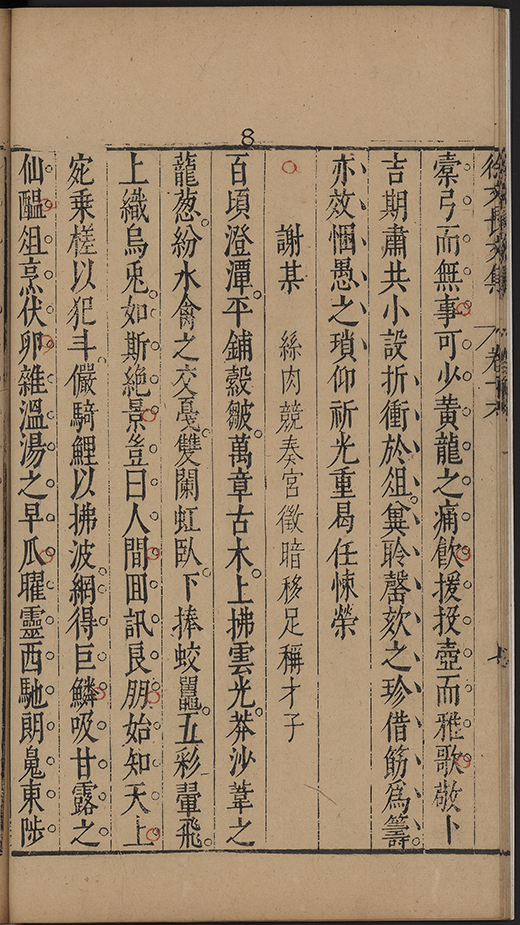 8
徐文長文集 卷十六 七
櫜弓而無事可少黃龍之痛飲援投壺而雅歌敬卜
吉期肅共小設折衝於俎冀聆罄欬之珍借筯爲籌
亦效悃愚之瑣仰祈光重曷任悚榮
謝某 絲肉競奏宮徵暗移足稱才子
百頃澄潭平鋪縠皺萬章古木上拂雲光莽沙葦之
龍葱紛水禽之交戞雙闌虹臥下捧蛟鼉五彩翬飛
上織烏兎如斯絶景豈曰人間囬訊良朋始知天上
宛乗槎以犯斗儼騎鯉以拂波網得巨鱗吸甘露之
仙醖俎烹伏卵雜溫湯之早瓜曜靈西馳朗鳬東陟